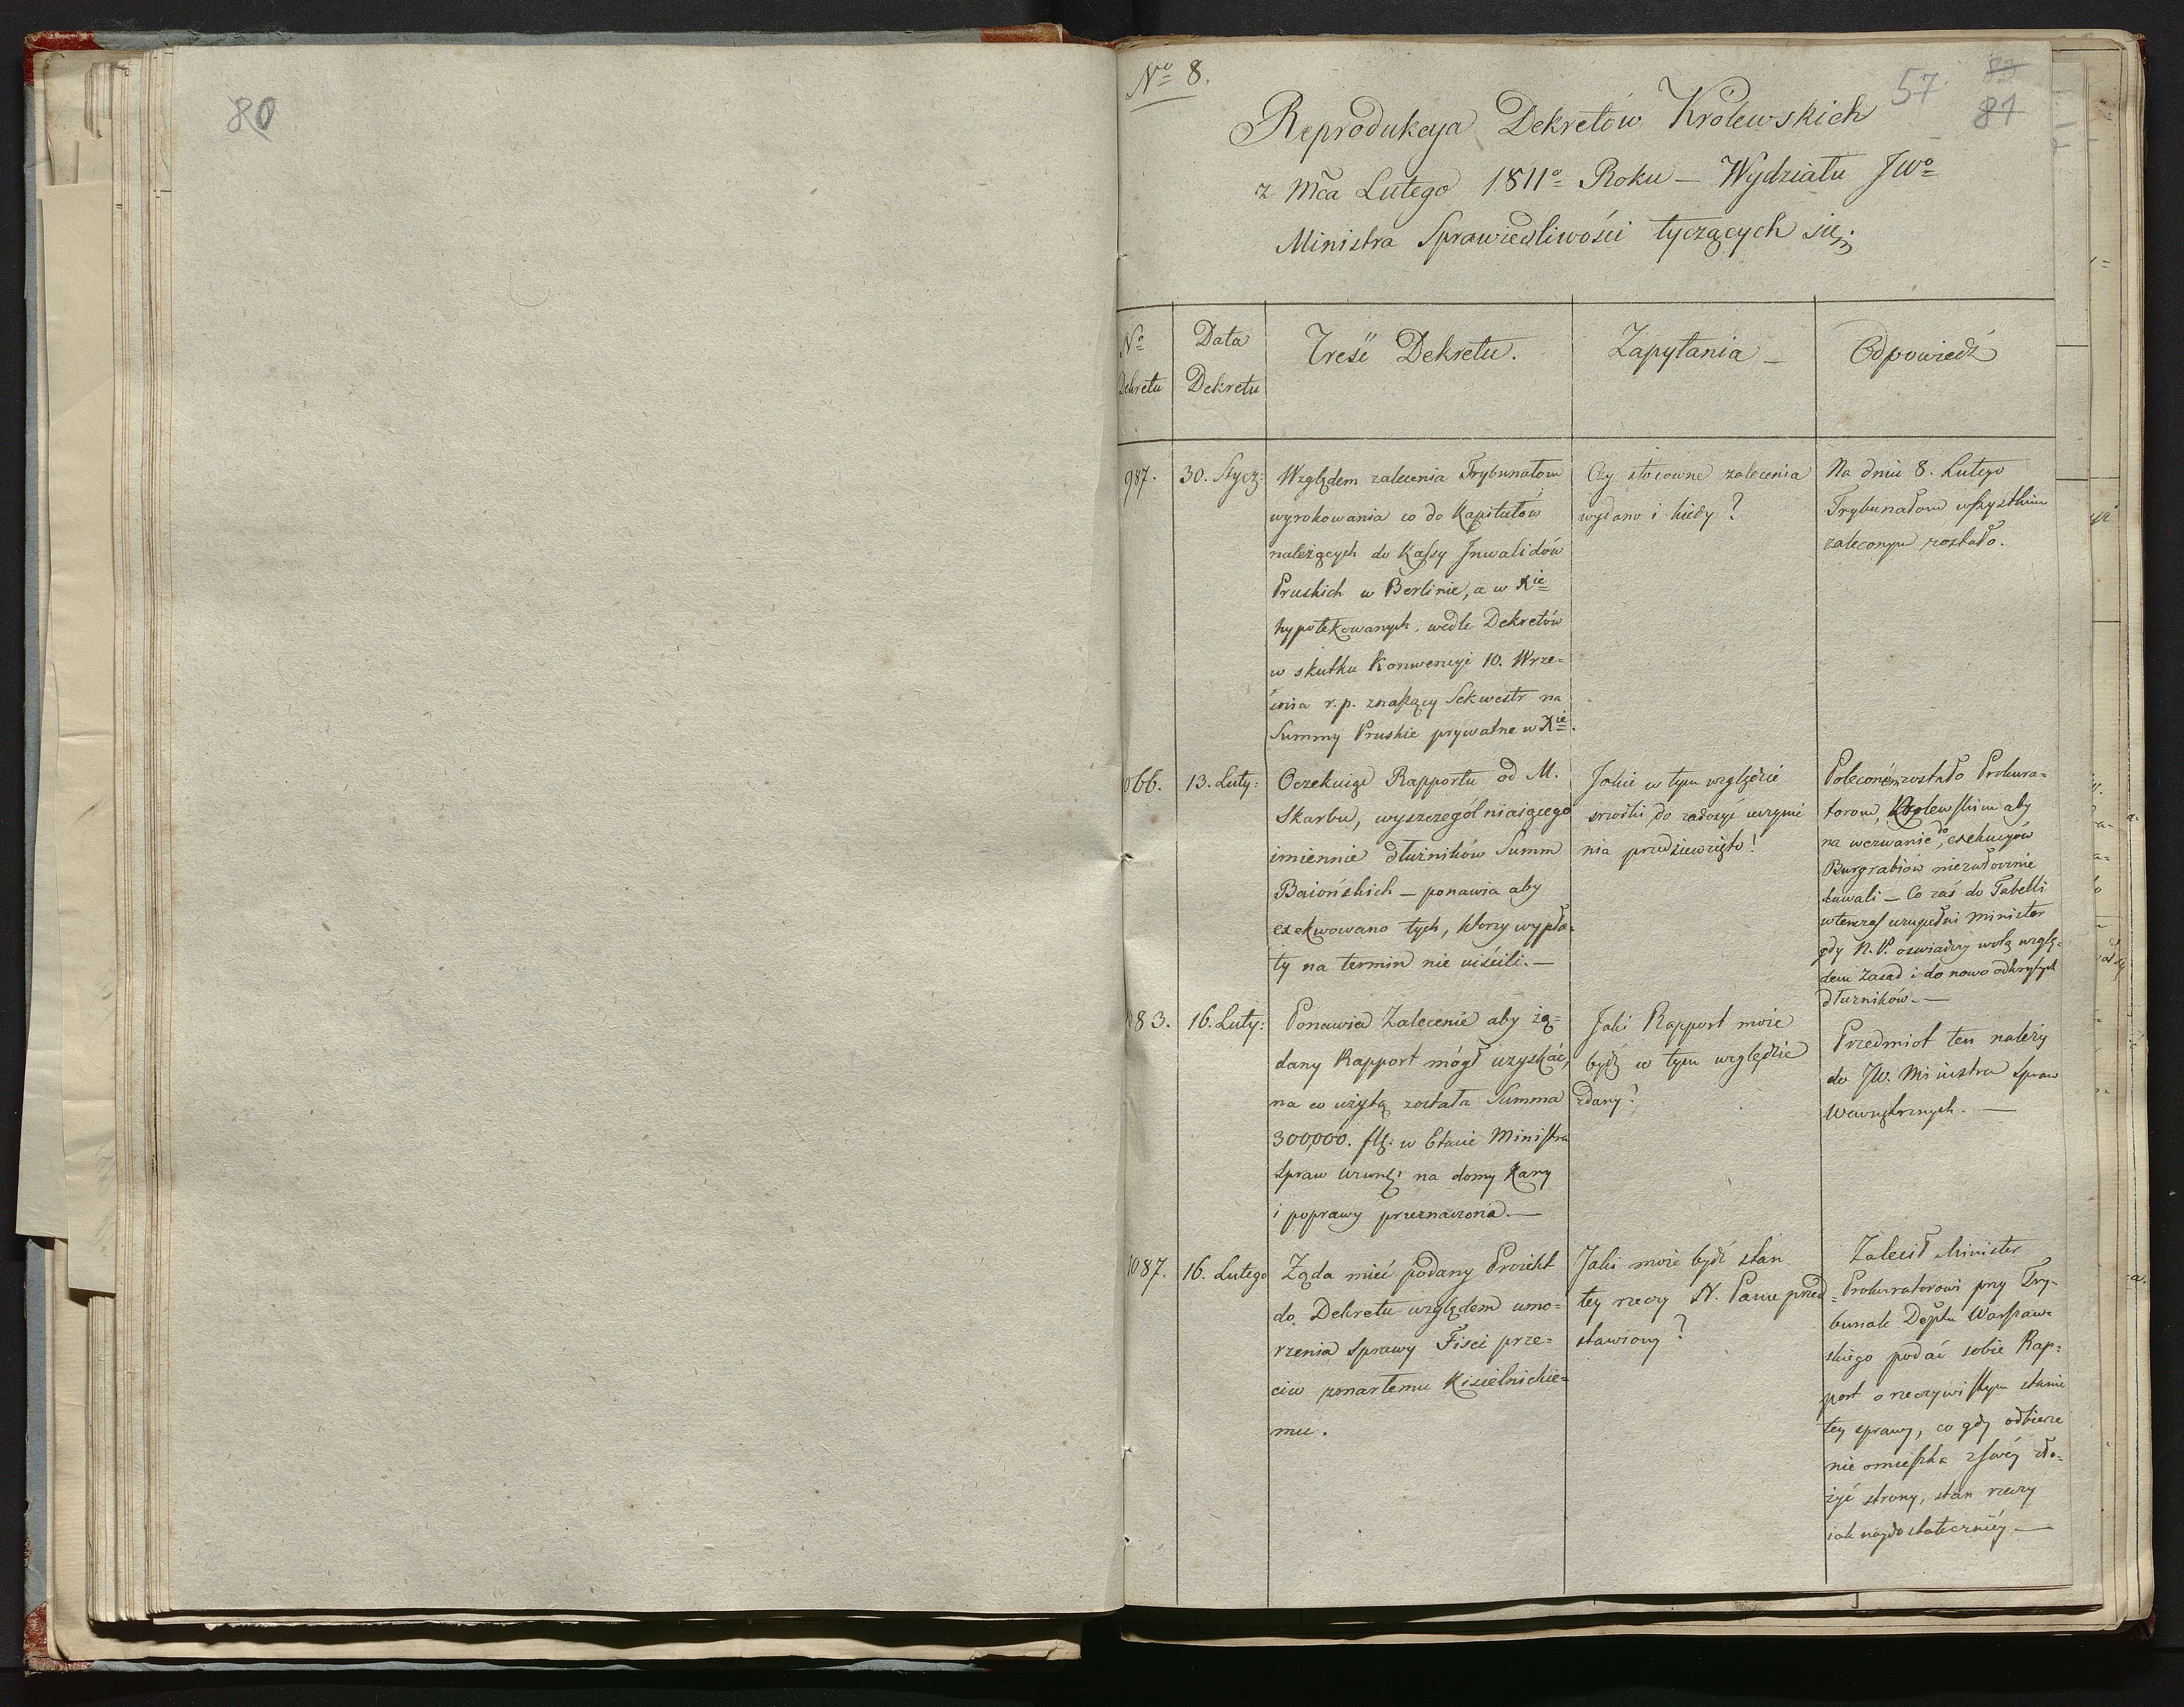 80
No 8.
57
83
81
Reprodukcya Dekretów Królewskich
z Mca Lutego 1811o Roku — Wydziału JWo
Ministra Sprawiedliwości tyczących się.
No Dekretu
Data Dekretu
Treść Dekretu.
Zapytania —
Odpowiedź
987.
30. Stycz:
Względem zalecenia Trybunałom
wyrokowania co do Kapitałów
należących do Kassy Inwalidów
Pruskich w Berlinie, a w Xie
hypotekowanych, wedle Dekretów
w skutku Konwencyi 10. Wrze=
śnia r. p. znoszący Sekwestr na
Summy Pruskie prywatne w Xie.
Czy stosowne zalecenia
wydano i kiedy?
Na dniu 8. Lutego
Trybunałom wszystkim
zaleconym zostało.
066.
13. Luty:
Oczekuige Rapportu od M.
Skarbu, wyszczególniaiącego
imiennie dłużników Summ
Baiońskich — ponawia aby
exekwowano tych, ktorzy wypła=
ty na termin nie uiścili. —
Jakie w tym względzie
srzodki do zadosyć uczynie
nia przedsiewzięto!
Poleconém zostało Prokura=
torom, Królewskim aby
na wezwanie do exekucyów
Burgrabiów niezwłocznie
dawali — Co zaś do Tabelli
wtenczas uzupełni Minister
gdy N. P. oswiadczy wolą wzglę=
dem Zasad i do nowo odkrytych
dłużników. —
083.
16. Luty:
Ponawia Zalecenie aby żą=
dany Rapport mógł uzyskać,
na co użytą została Summa
300,000. fl: w Etacie Ministra
Spraw wewnę: na domy Kary
i poprawy przeznaczona. —
Jaki Rapport może
bydź w tym względzie
zdany?
Przedmiot ten należy
do JW. Ministra Spraw
Wewnętrznych. —
1087.
16. Lutego
Żąda mieć podany Proiekt
do Dekretu względem umo=
rzenia Sprawy Fisci prze=
ciw zmarłemu Kisielnickie=
mu.
Jaki może bydź stan
tey rzeczy N. Panu przed=
stawiony?
Zalecił Minister
Prokuratorowi przy Try=
bunale Deptu Warszaw=
skiego podać sobie Rap=
port o rzeczywistym stanie
tey sprawy, co gdy odbierze
nie omieszka z swéy zło=
żyć strony, stan rzeczy
iak naydostateczniéy —